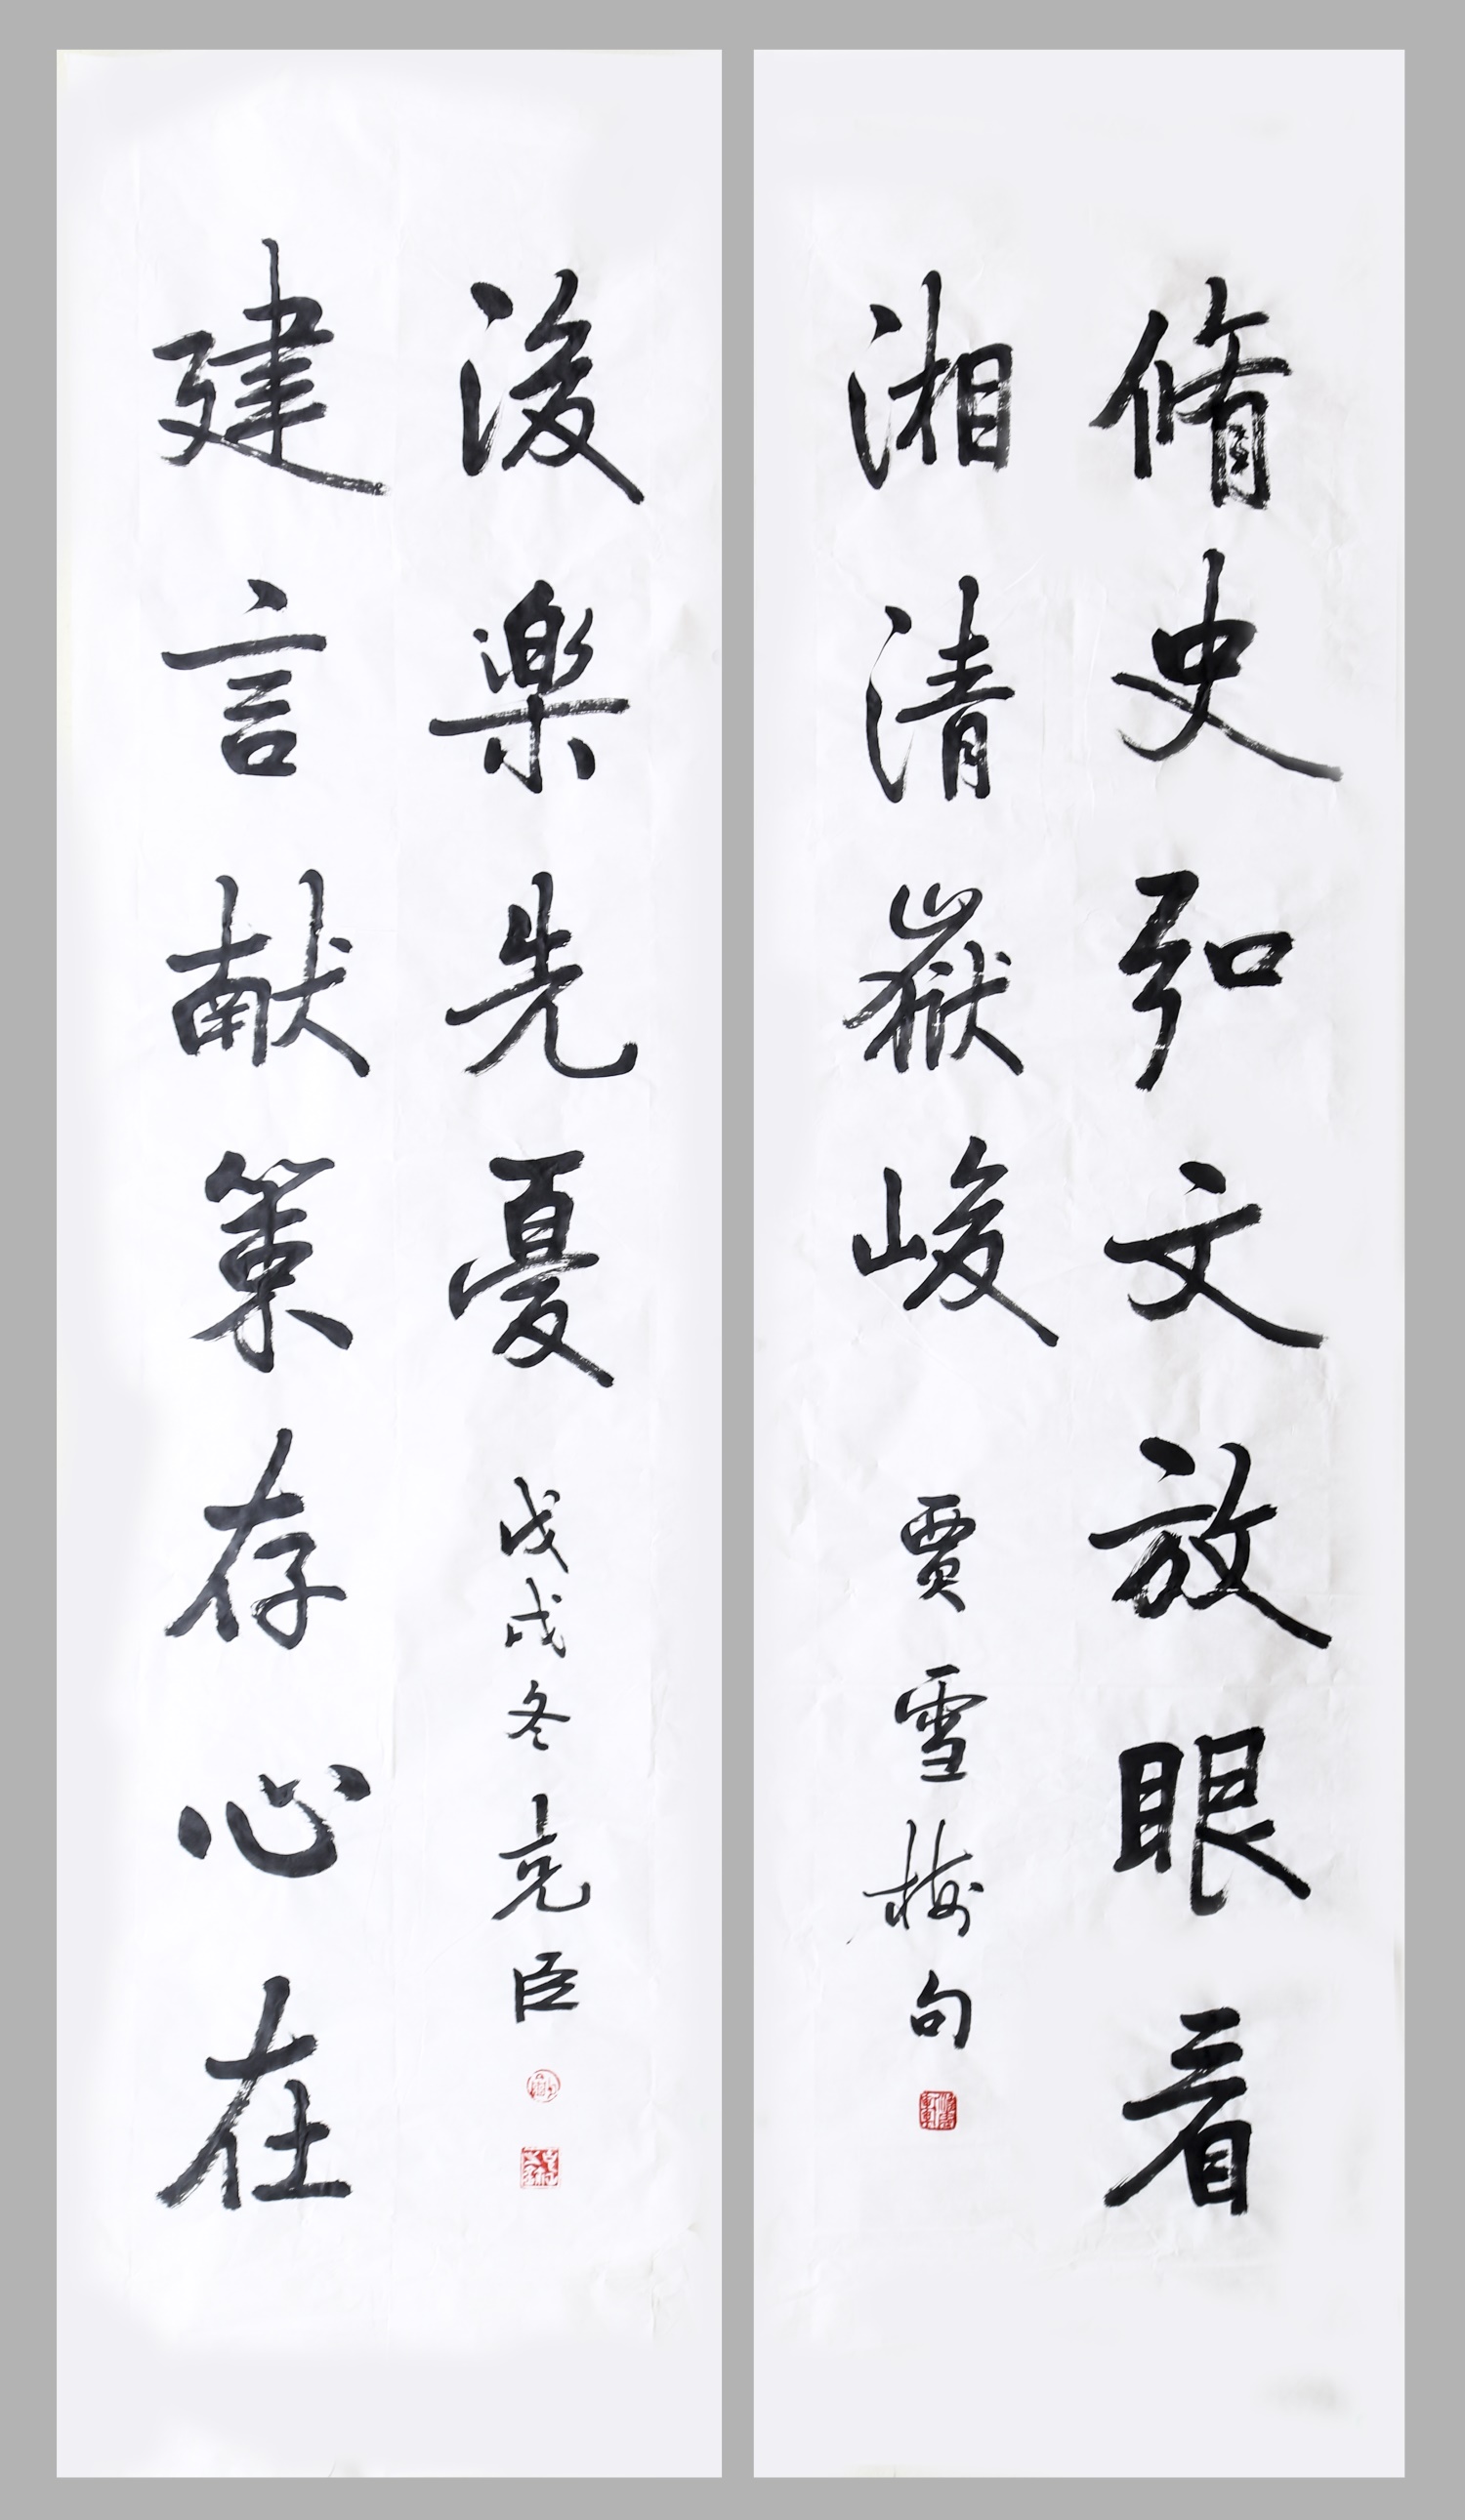 脩史弘文放眼看
湘清嶽峻
賈雪梅句
建言献策存心在
後樂先憂
戊戌冬亮臣